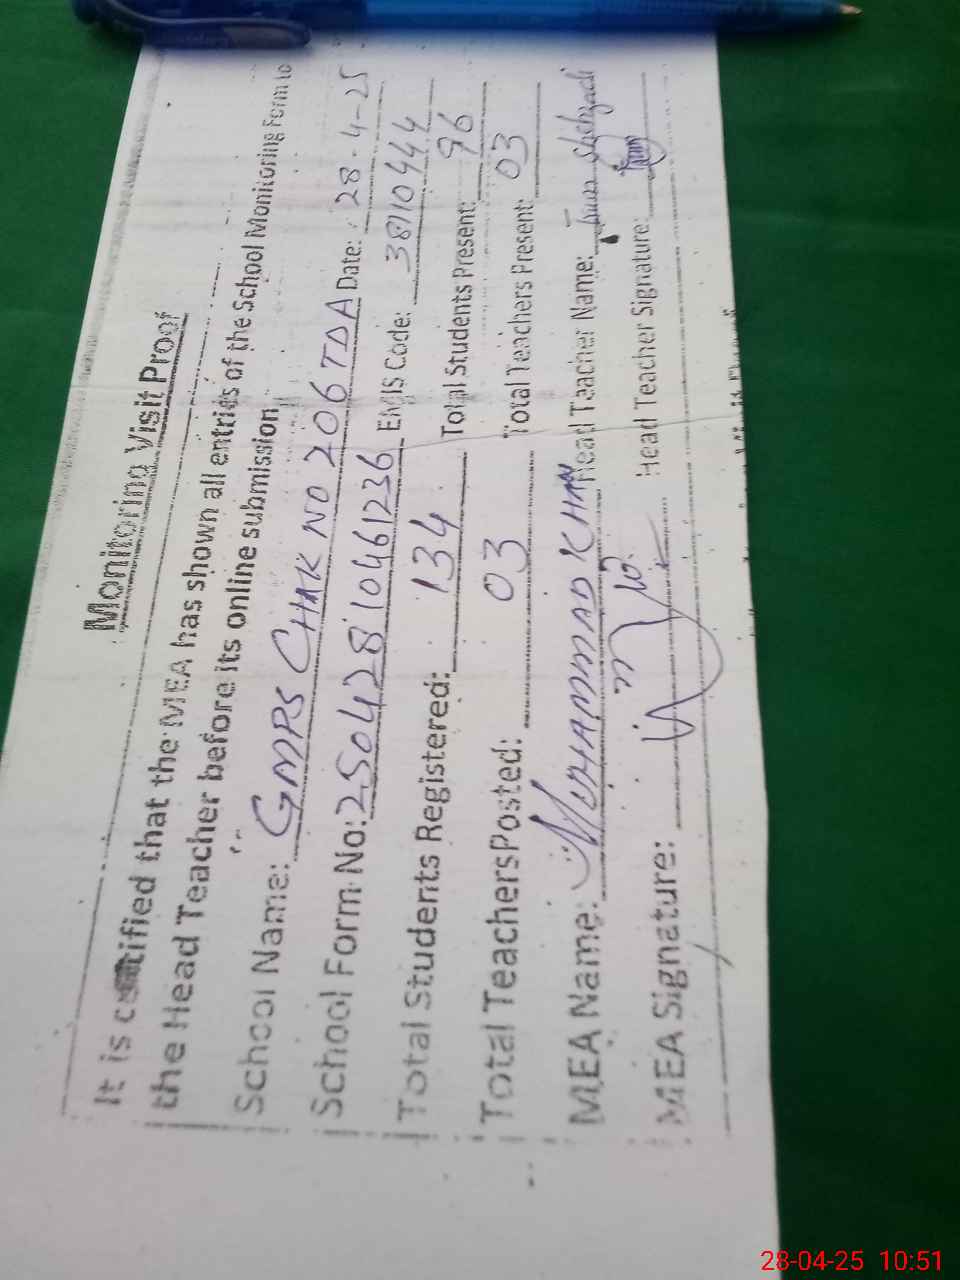 Monitoring Visit Proof
It is certified that the MEA has shown all entries of the School Monitoring Form to
the Head Teacher before its online submission
School Name: GMPS CHAK NO 206 TDA Date: 28-4-25
School Form No: 250428 10461236 EMIS Code: 38110444
Total Students Registered: 134 Total Students Present: 96
Total Teachers Posted: 03 Total Teachers Present: 03
MEA Name: MUHAMMAD KHAN Head Teacher Name: Shehzadi
MEA Signature: Head Teacher Signature:
28-04-25 10:51